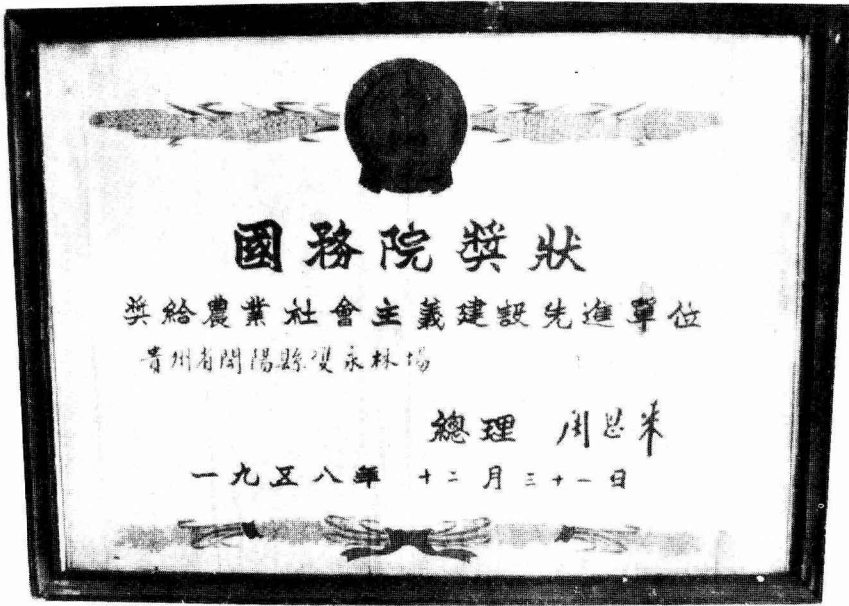 國務院獎狀
獎給農業社會主義建設先進單位
貴州省開陽縣雙永林場
總理 周恩来
一九五八年 十二月三十一日